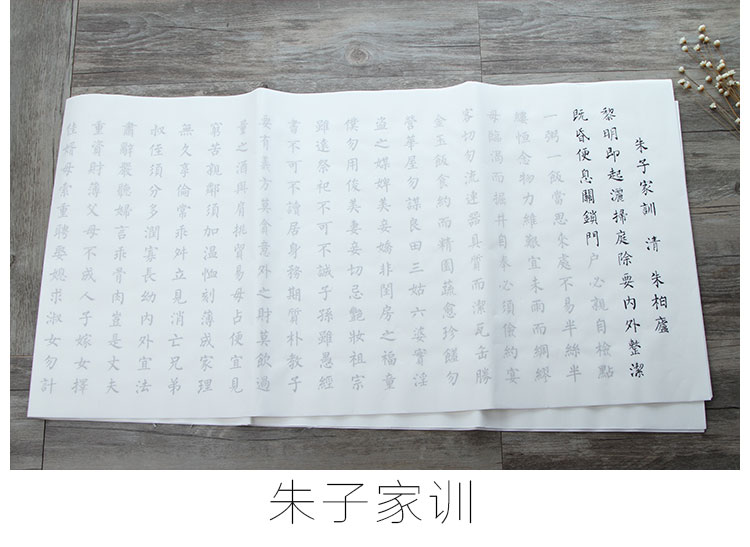 朱子家訓　清　朱柏廬
黎明即起灑掃庭除要内外整潔
既昏便息關鎖門户必親自檢點
一粥一飯當思來處不易半絲半
縷恒念物力維艱宜未雨而綢繆
毋臨渴而掘井自奉必須儉約宴
客切勿流連器具質而潔瓦缶勝
金玉飯食約而精園蔬愈珍饈勿
營華屋勿謀良田三姑六婆實淫
盜之媒婢美妾嬌非閨房之福童
僕勿用俊美妻妾切忌艷妝祖宗
雖遠祭祀不可不誠子孫雖愚經
書不可不讀居身務期質朴教子
要有義方莫貪意外之財莫飲過
量之酒與肩挑貿易毋占便宜見
窮苦親鄰須加温恤刻薄成家理
無久享倫常乖舛立見消亡兄弟
叔侄須分多潤寡長幼内外宜法
肅辭嚴聽婦言乖骨肉豈是丈夫
重資財薄父母不成人子嫁女擇
佳婿毋索重聘娶媳求淑女勿計
朱子家训